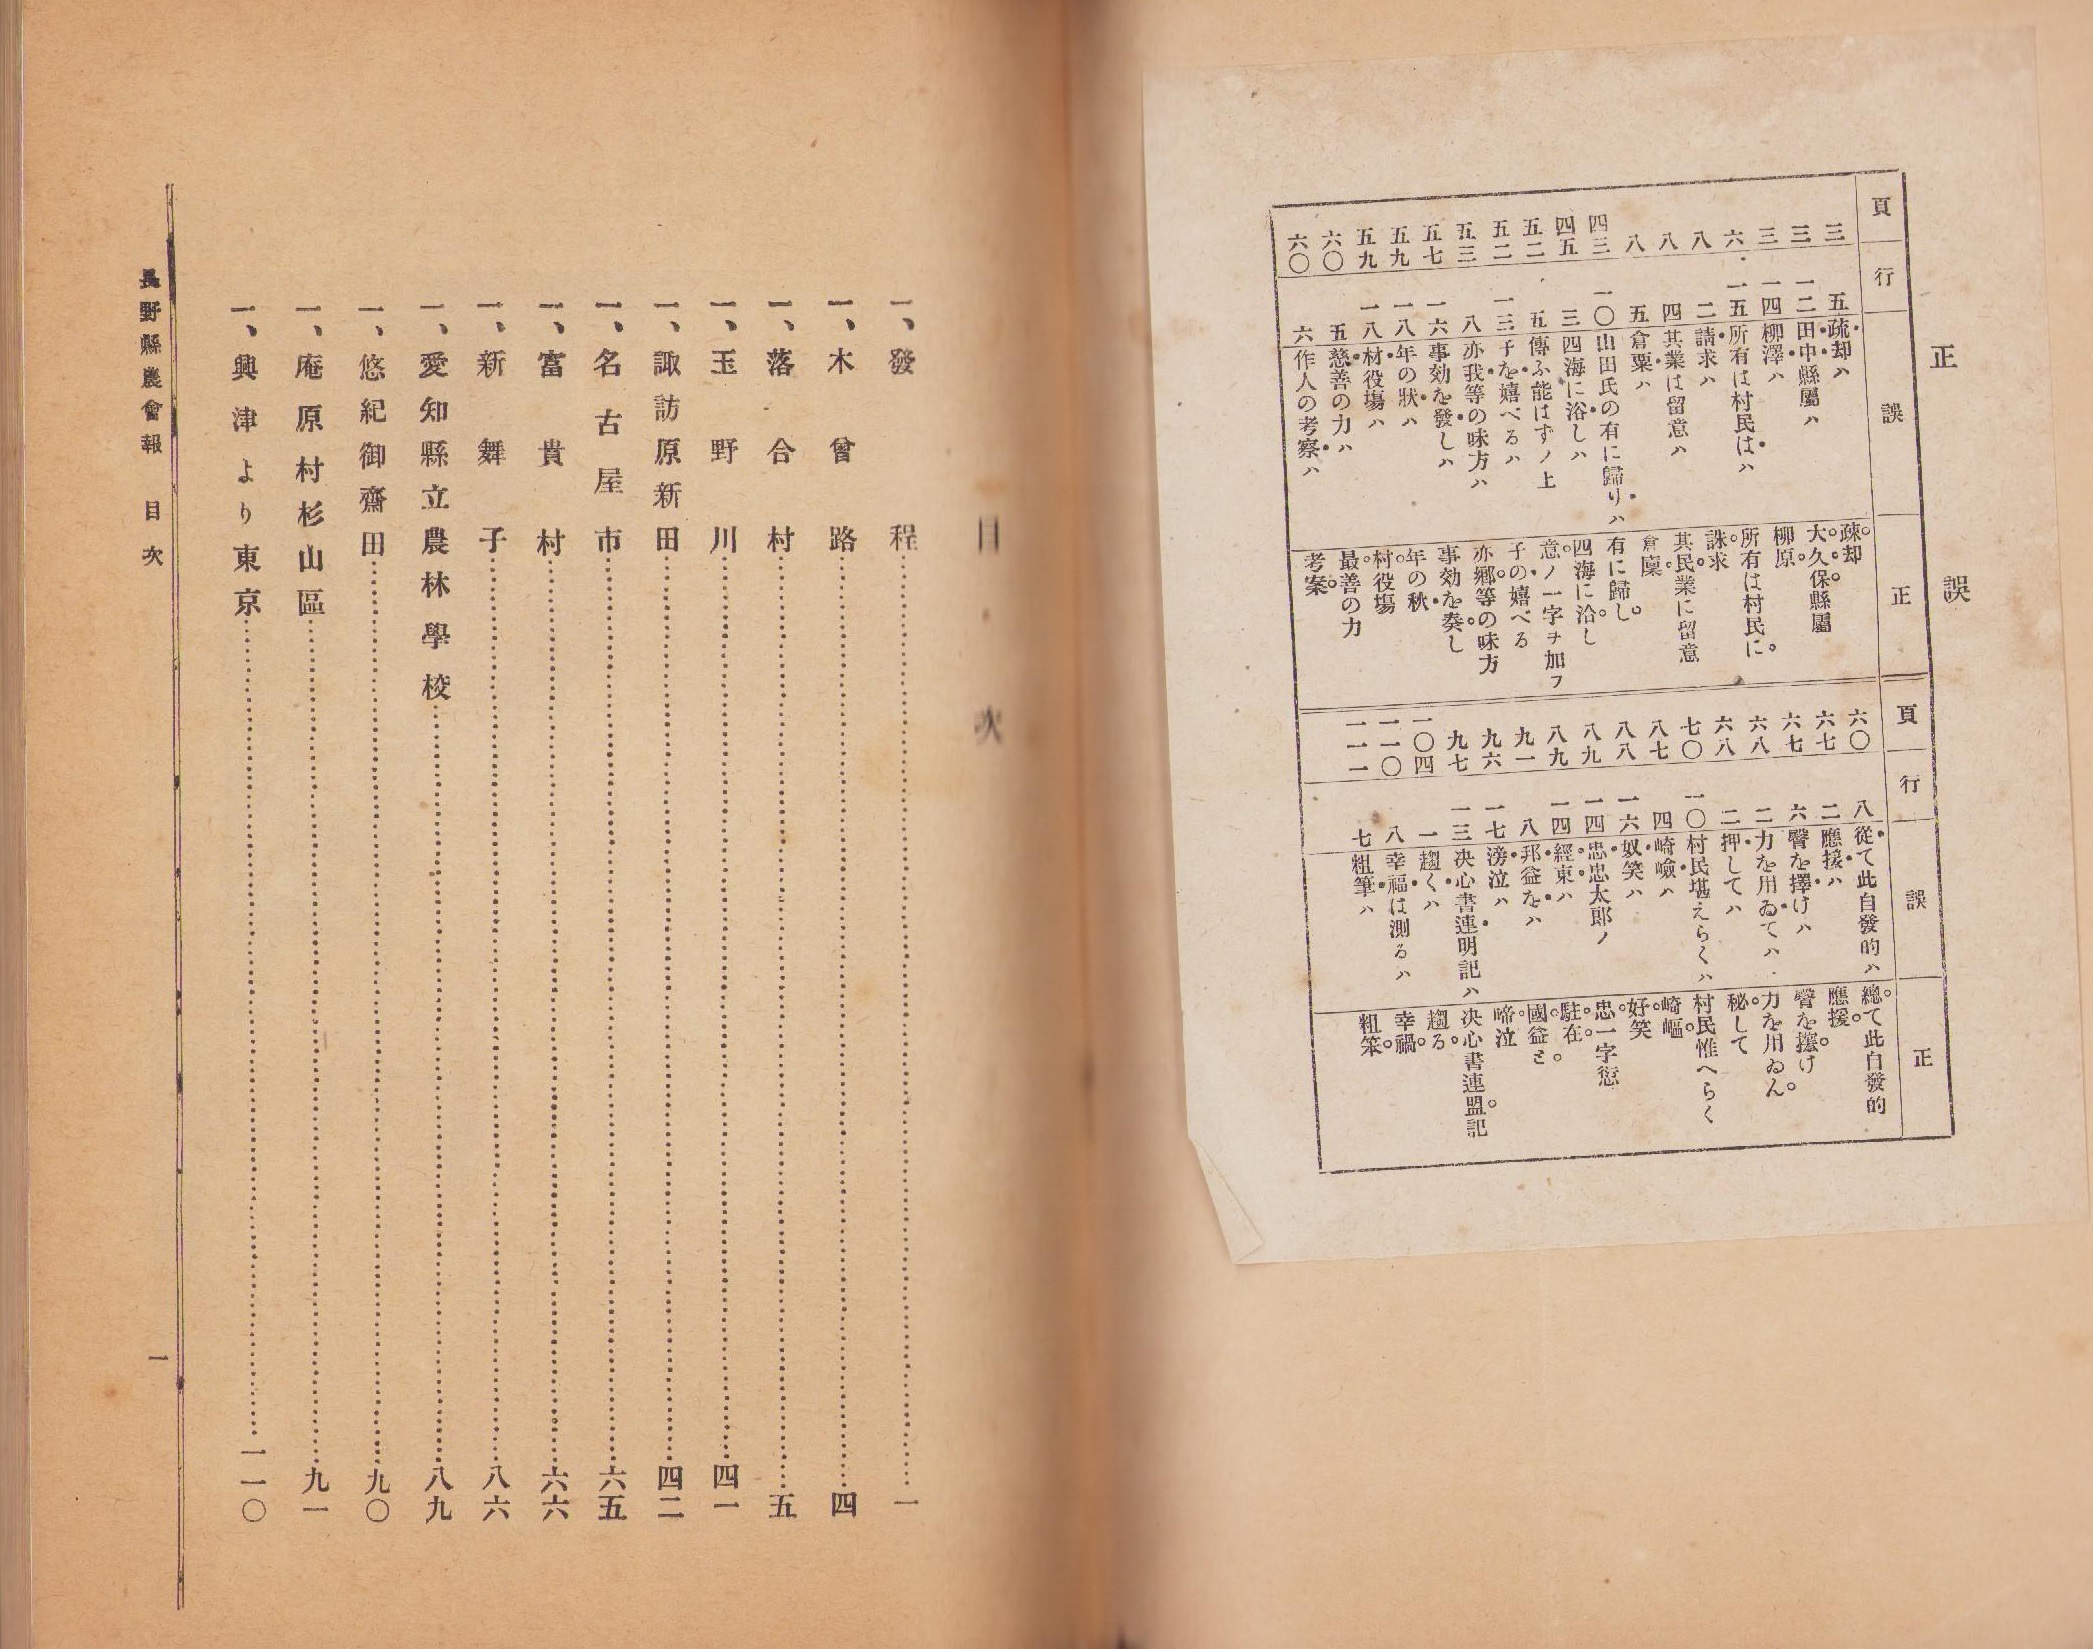 正誤
頁 行 誤 正
三 五 疏却ハ 疎却
三 一二 田中縣屬ハ 大久保縣屬
三 一四 柳澤ハ 柳原
六 一五 所有は村民はハ 所有は村民に
八 二 請求ハ 誅求
八 四 其業は留意ハ 其民業に留意
八 五 倉粟ハ 倉廩
四三 一〇 山田氏の有に歸りハ 有に歸し
四五 三 四海に浴しハ 四海に洽し
五二 五 傳ふ能はずノ上 意ノ一字ヲ加フ
五二 一三 子を嬉べるハ 子の嬉べる
五三 八 亦我等の味方ハ 亦郷等の味方
五七 一六 事効を發しハ 事効を奏し
五九 一八 年の狀ハ 年の秋
五九 一八 材役塲ハ 村役塲
六〇 五 慈善の力ハ 最善の力
六〇 六 作人の考察ハ 考案
頁 行 誤 正
六〇 八 從て此自發的ハ 總て此自發的
六七 二 應接ハ 應援
六七 六 臂を擇けハ 臂を攘け
六八 二 力を用ゐてハ 力を用ゐん
六八 二 押してハ 秘して
七〇 一〇 村民堪えらくハ 村民惟へらく
八七 四 崎嶮ハ 崎嶇
八八 一六 奴笑ハ 好笑
八九 一四 忠忠太郎ノ 忠一字衍
八九 一四 經東ハ 駐在
九一 八 邦益をハ 國益と
九六 一七 滂泣ハ 啼泣
九七 一三 决心書連明記ハ 决心書連盟記
一〇四 一 趨くハ 趨る
一一〇 八 幸福は測るハ 幸禍
一一一 七 粗筆ハ 粗笨
目次
一、發程…………一
一、木曾路…………四
一、落合村…………五
一、玉野川…………四一
一、諏訪原新田…………四二
一、名古屋市…………六五
一、富貴村…………六六
一、新舞子…………八六
一、愛知縣立農林學校…………八九
一、悠紀御齋田…………九〇
一、庵原村杉山區…………九一
一、興津より東京…………一一〇
長野縣農會報 目次
一